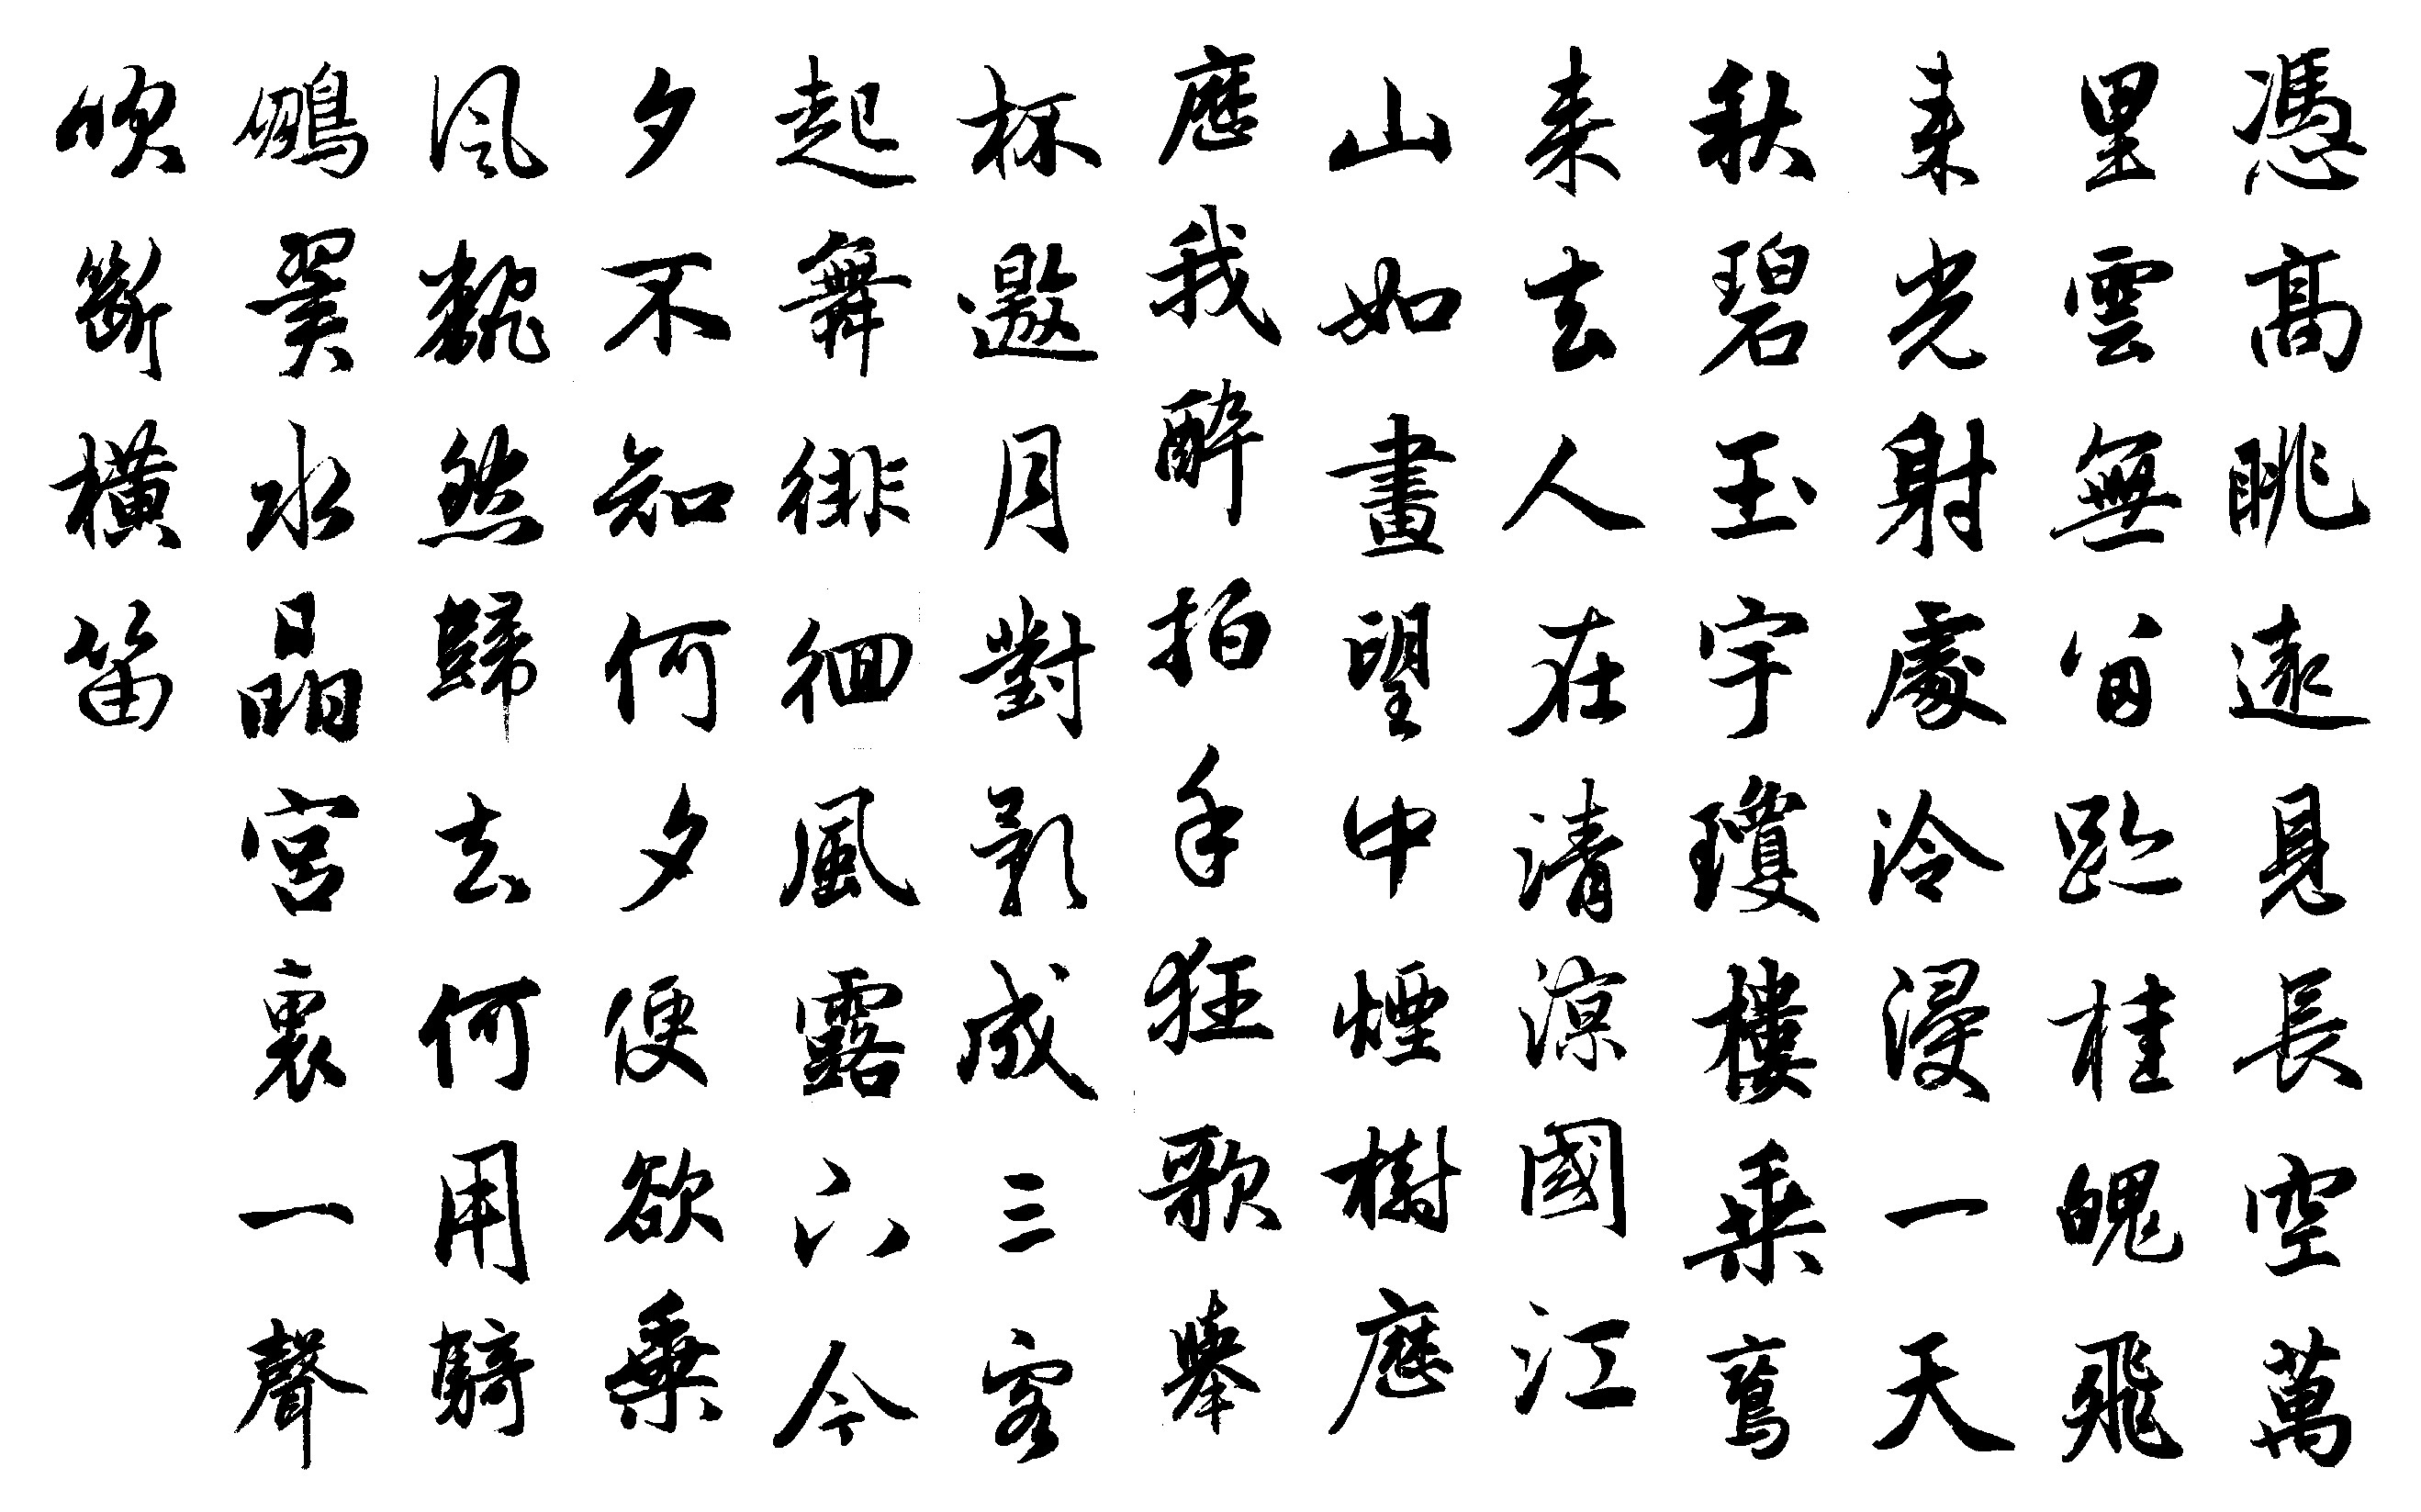 憑高眺遠見長空萬
里雲無留跡桂魄飛
来光射處冷浸一天
秋碧玉宇瓊樓乘鸞
来去人在清涼國江
山如畫望中煙樹歷
歷我醉拍手狂歌舉
杯邀月對影成三客
起舞徘徊風露下今
夕不知何夕便欲乘
風飜然歸去何用騎
鵬翼水晶宮裏一聲
吹斷橫笛